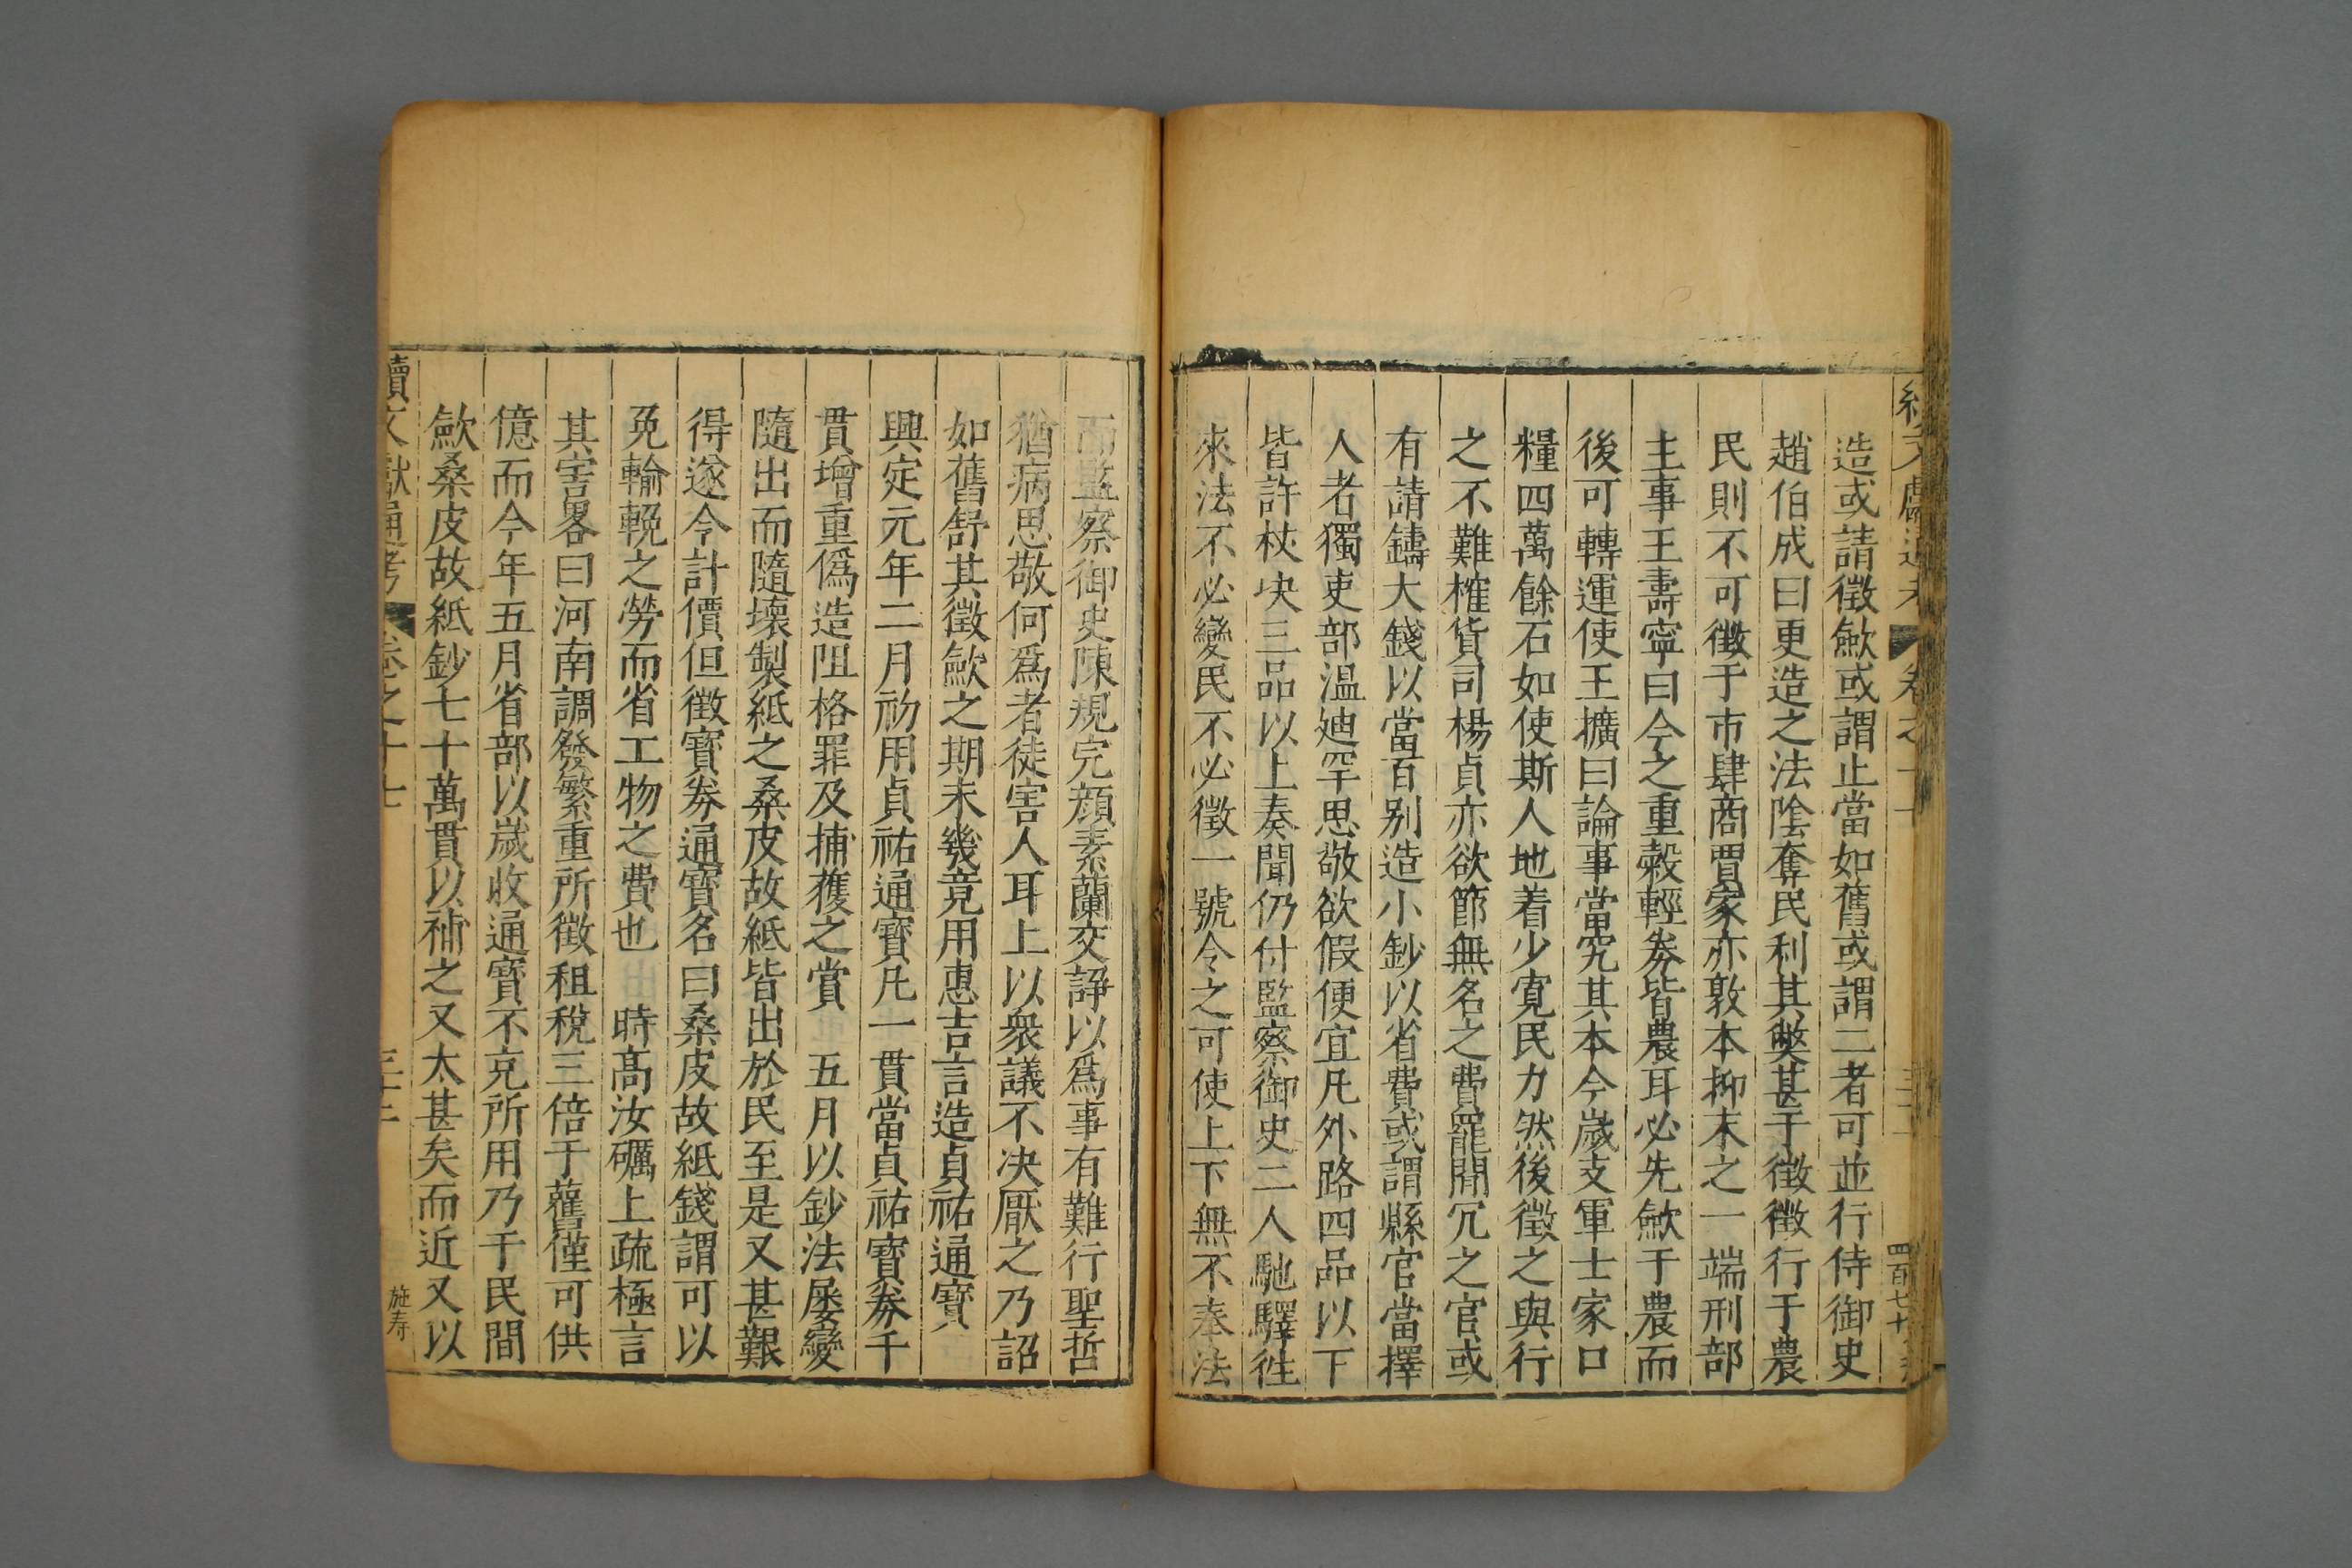 造或請徵斂或謂止當如舊或謂二者可並行侍御史
趙伯成曰更造之法陰奪民利其獘甚于徵徵行于農
民則不可徵于市肆商賈家亦敦本抑末之一端刑部
主事王壽寧曰今之重穀輕券皆農耳必先斂于農而
後可轉運使王擴曰論事當究其本今歲支軍士家口
糧四萬餘石如使斯人地着少寬民力然後徵之與行
之不難榷貨司楊貞亦欲節無名之費罷閒冗之官或
有請鑄大錢以當百别造小鈔以省費或謂縣官當擇
人者獨吏部溫迪罕思敬欲假便宜凡外路四品以下
皆許杖决三品以上奏聞仍付監察御史二人馳驛徃
來法不必變民不必徵一號令之可使上下無不奉法
而監察御史陳規完顔素蘭交諍以爲事有難行聖哲
猶病思敬何爲者徒害人耳上以衆議不决厭之乃詔
如舊舒其徵斂之期未幾竟用惠吉言造貞祐通寶
興定元年二月初用貞祐通寶凡一貫當貞祐寶券千
貫增重僞造阻格罪及捕獲之賞 五月以鈔法屡變
隨出而隨壊製紙之桑皮故紙皆出於民至是又甚艱
得遂令計價但徵寶券通寶名曰桑皮故紙錢謂可以
免輸輓之勞而省工物之費也 時髙汝礪上疏極言
其害畧曰河南調發繁重所徵租稅三倍于舊僅可供
億而今年五月省部以歲收通寶不充所用乃于民間
斂桑皮故紙鈔七十萬貫以補之又太甚矣而近又以
續文獻通考 卷之十七
施寿